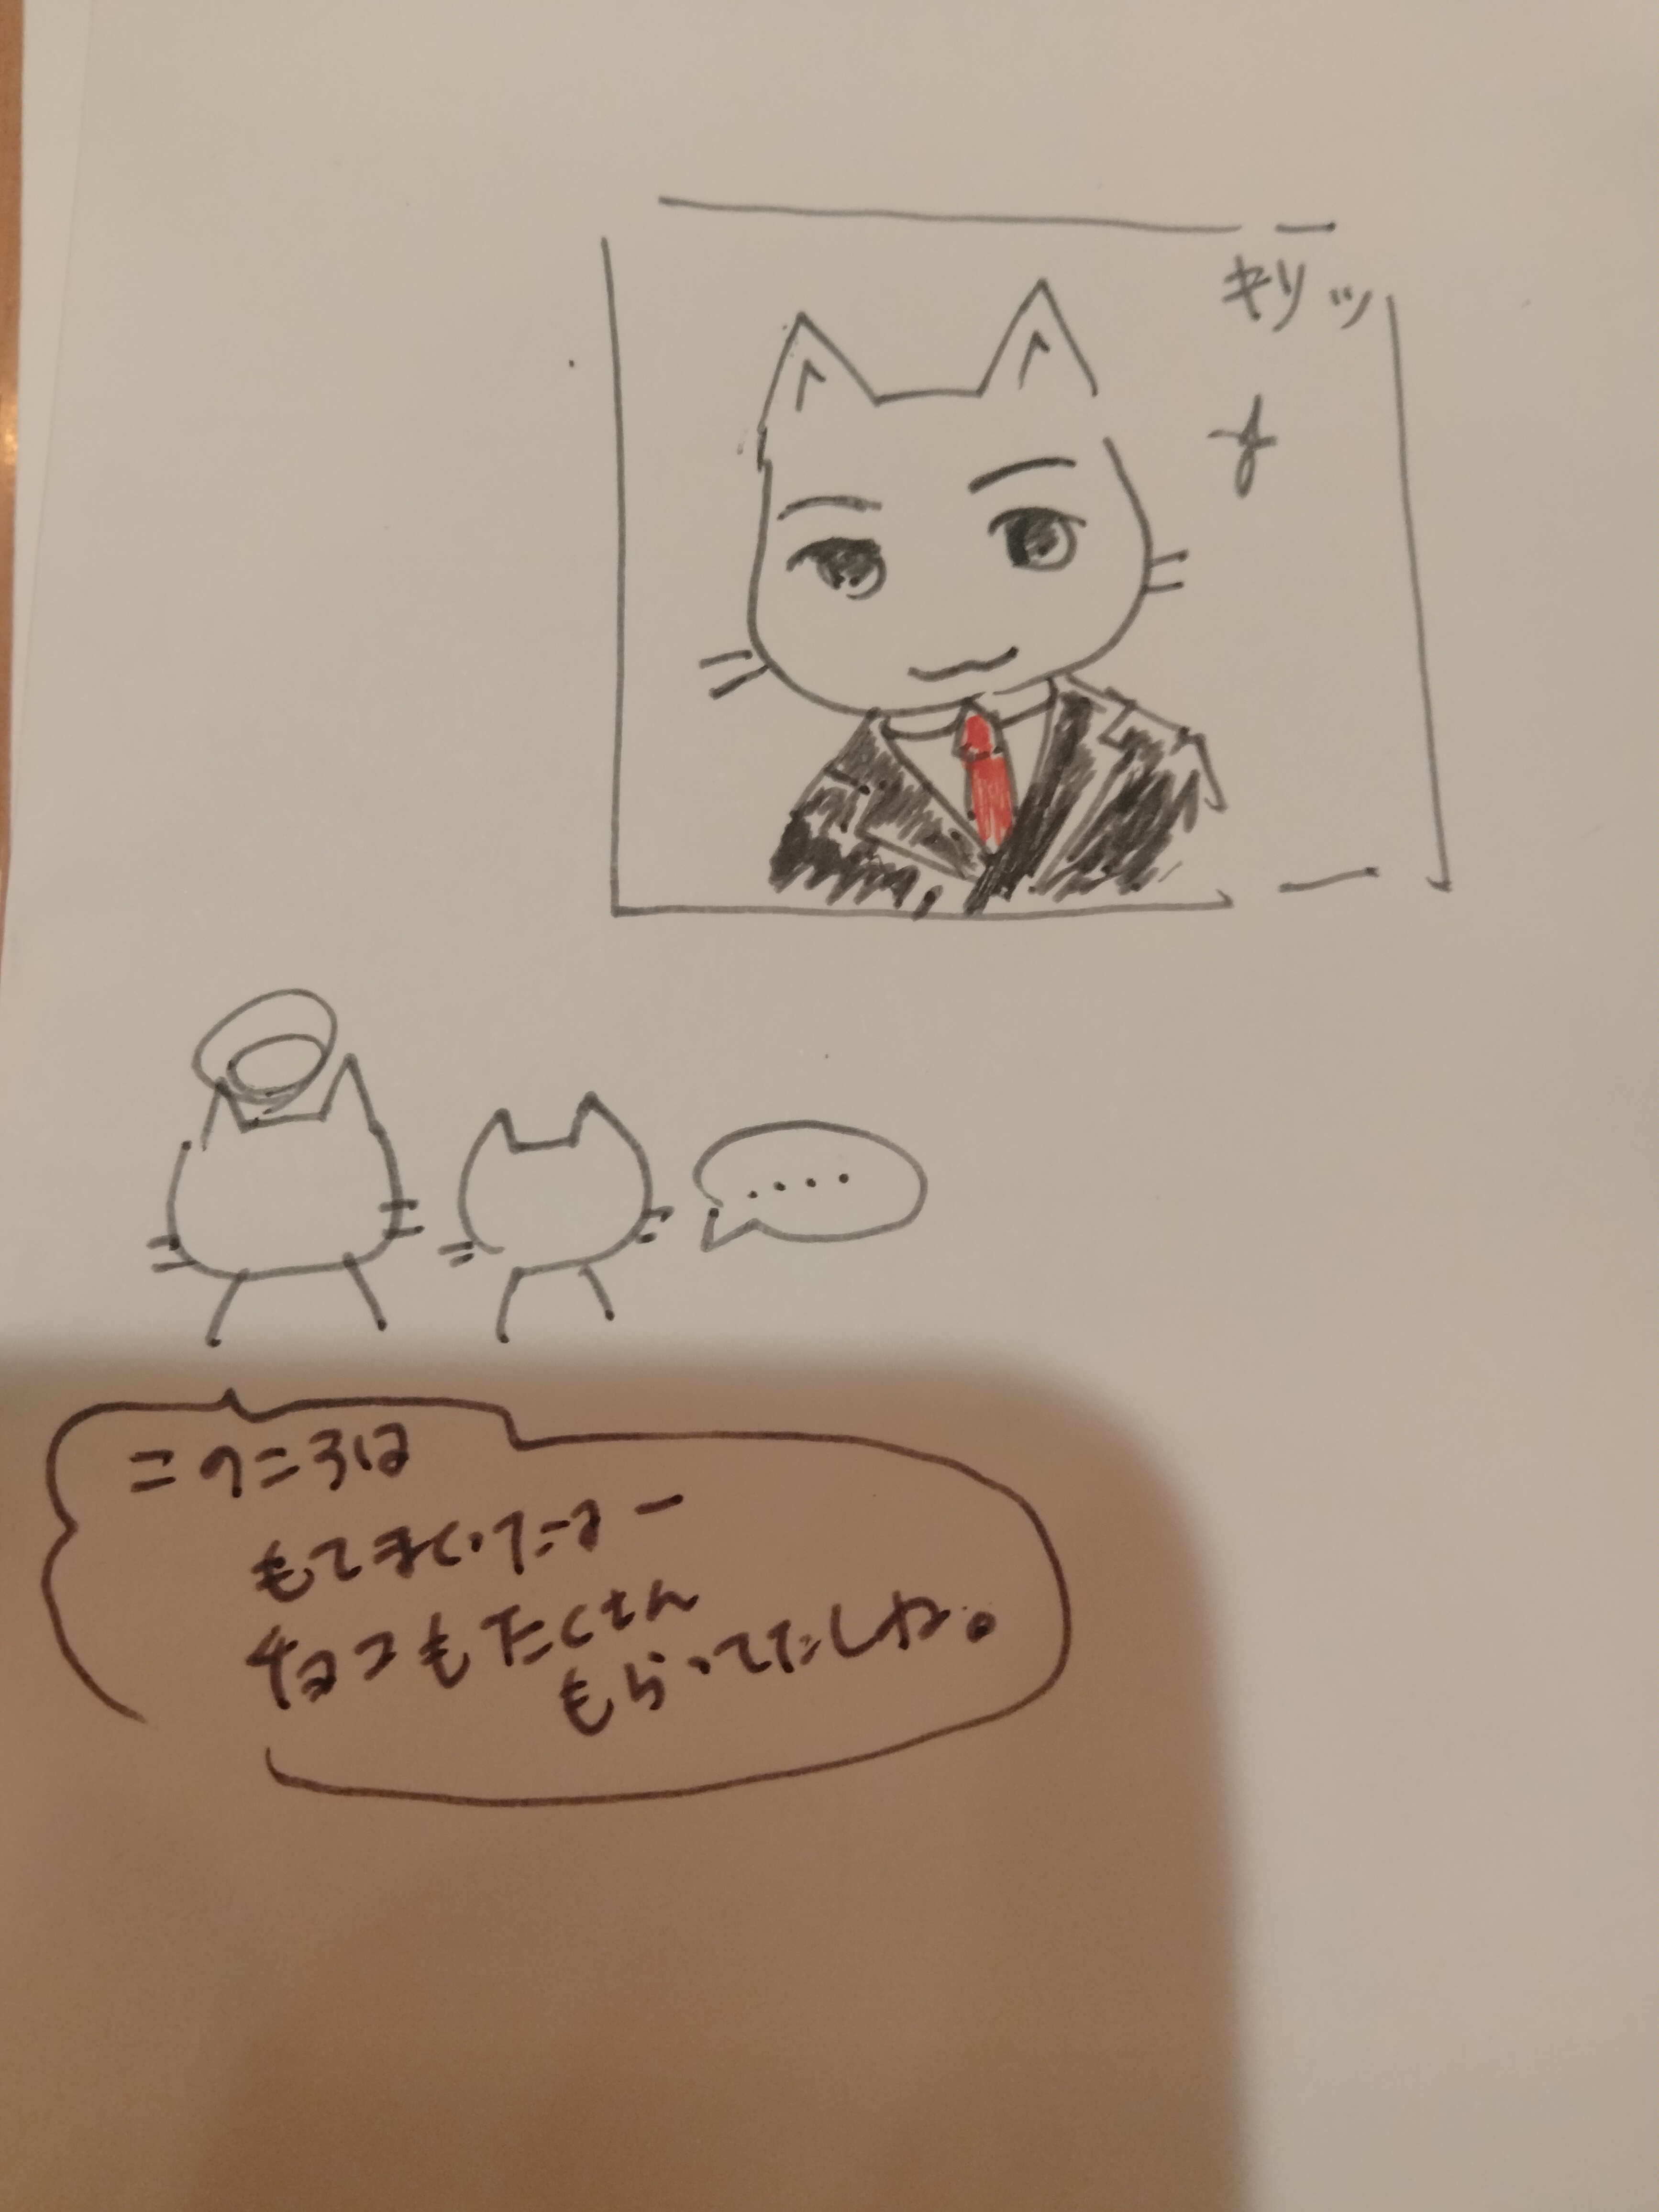 キリッ
....
このころは
もてまくってたなー
チョコもたくさん
もらってたしね。